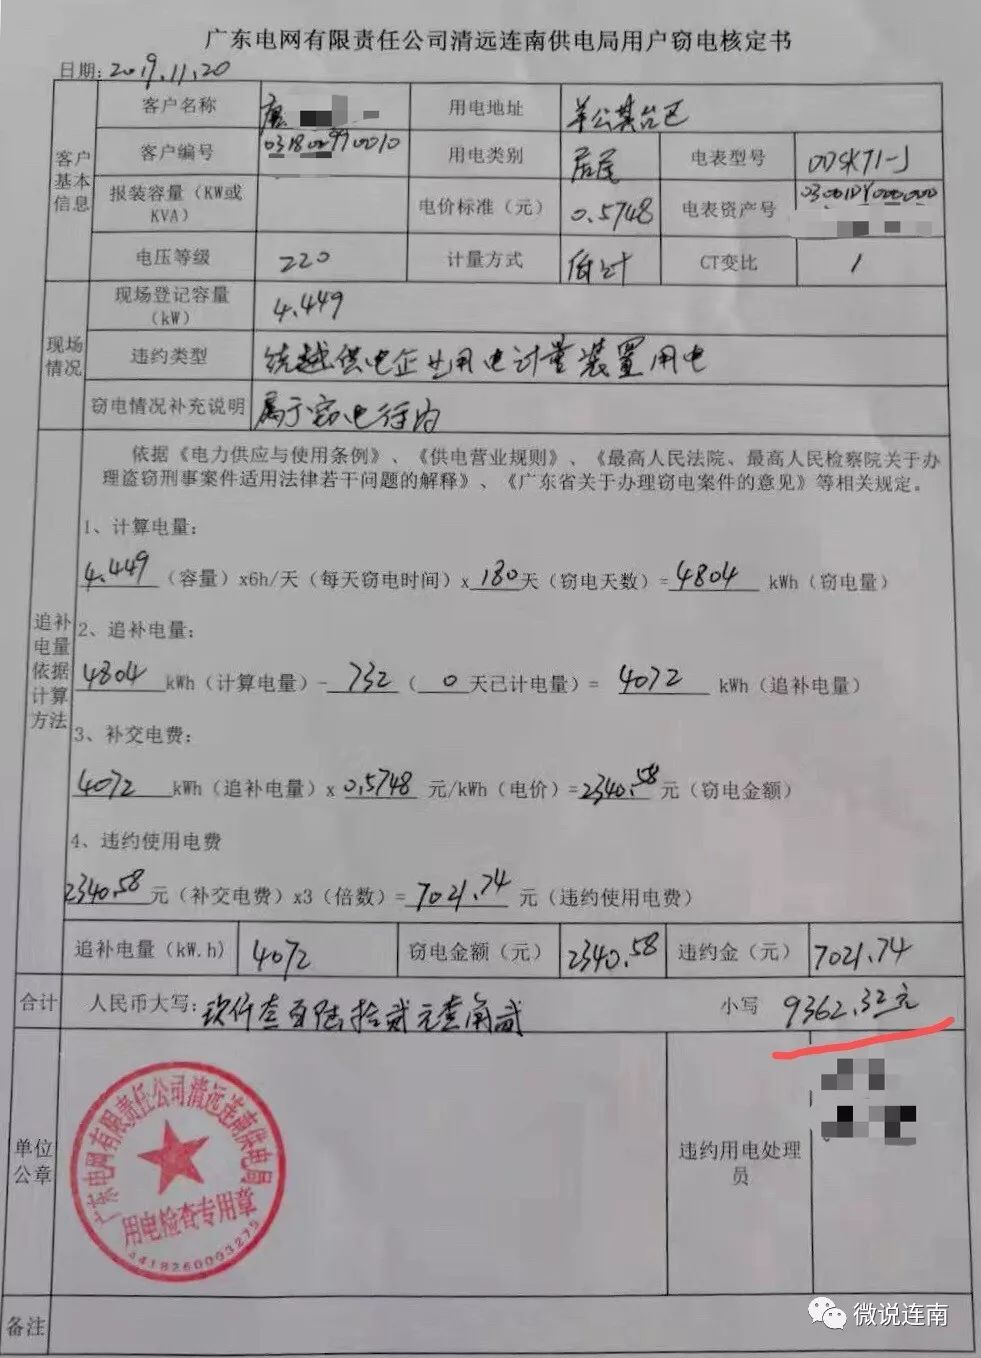 广东电网有限责任公司清远连南供电局用户窃电核定书
日期：2019.11.20
客户基本信息
客户名称 唐 用电地址 羊公其台区
客户编号 0318009970010 用电类别 居民 电表型号 DDSK71-J
报装容量（KW或KVA） 电价标准（元） 0.5748 电表资产号
电压等级 220 计量方式 低计 CT变比 1
现场情况
现场登记容量（kW） 4.449
违约类型 绕越供电企业用电计量装置用电
窃电情况补充说明 属于窃电行为
追补电量依据计算方法
依据《电力供应与使用条例》、《供电营业规则》、《最高人民法院、最高人民检察院关于办
理盗窃刑事案件适用法律若干问题的解释》、《广东省关于办理窃电案件的意见》等相关规定。
1、计算电量：
4.449（容量）x6h/天（每天窃电时间）x 180天（窃电天数）=4804 kWh（窃电量）
2、追补电量：
4804 kWh（计算电量）- 732（ 0 天已计电量）= 4072 kWh（追补电量）
3、补交电费：
4072 kWh（追补电量）x 0.5748 元/kWh（电价）=2340.58元（窃电金额）
4、违约使用电费
2340.58元（补交电费）x3（倍数）=7021.74 元（违约使用电费）
追补电量（kW.h） 4072 窃电金额（元） 2340.58 违约金（元） 7021.74
合计 人民币大写：玖仟叁百陆拾贰元叁角贰 小写 9362.32元
单位公章
广东电网有限责任公司清远连南供电局
用电检查专用章
4418260003275
违约用电处理员
备注
微说连南